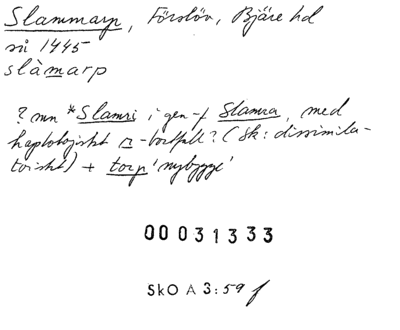 Slammarp, Förslöv, Bjäre hd
så 1445
slàmarp
? mn *Slamri i gen-f Slamra, med
haplologiskt r-bortfall? (Sk: dissimila-
toriskt) + torp 'nybygge'
00031333
SkO A 3:59 f